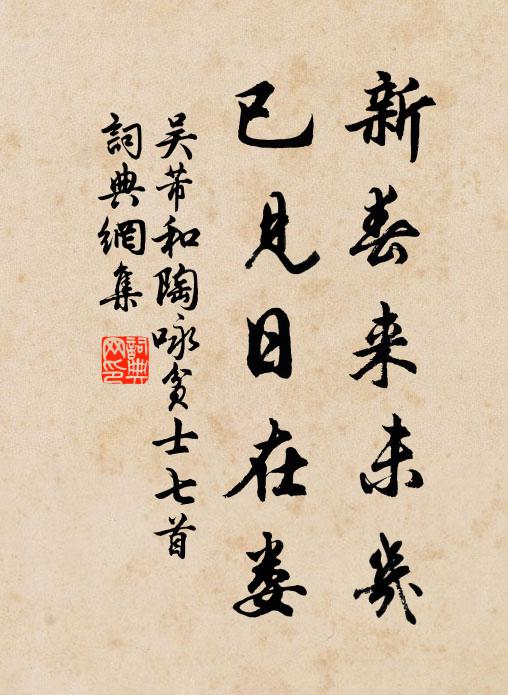 新春来未幾
已見日在娄
吴芾和陶咏贫士七首
詞典網集
詞典网印